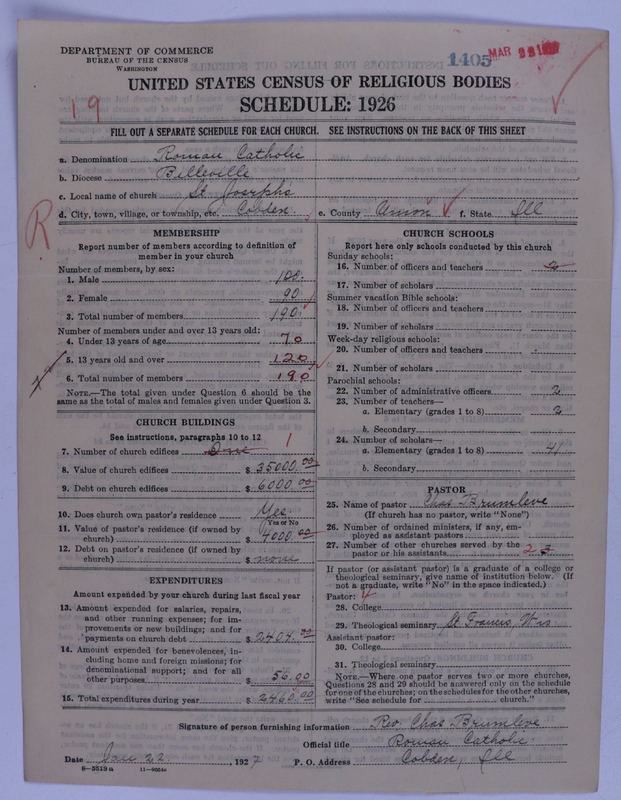 DEPARTMENT OF COMMERCE
BUREAU OF THE CENSUS
WASHINGTON
1405
MAR
UNITED STATES CENSUS OF RELIGIOUS BODIES
SCHEDULE: 1926
19
FILL OUT A SEPARATE SCHEDULE FOR EACH CHURCH. SEE INSTRUCTIONS ON THE BACK OF THIS SHEET
a. Denomination Roman Catholic
b. Diocese Belleville
c. Local name of church St Josephs
d. City, town, village, or township, etc. Cobden e. County Union f. State Ill
R
MEMBERSHIP
Report number of members according to definition of
member in your church
Number of members, by sex:
1. Male 100
2. Female 90
3. Total number of members 190
Number of members under and over 13 years old:
4. Under 13 years of age 70
5. 13 years old and over 120
6. Total number of members 190
NOTE.—The total given under Question 6 should be the
same as the total of males and females given under Question 3.
CHURCH BUILDINGS
See instructions, paragraphs 10 to 12
7. Number of church edifices One 1
8. Value of church edifices $ 35000.00
9. Debt on church edifices $ 6000.00
10. Does church own pastor's residence Yes
Yes or No
11. Value of pastor's residence (if owned by
church) $ 4000.00
12. Debt on pastor's residence (if owned by
church) $ none
EXPENDITURES
Amount expended by your church during last fiscal year
13. Amount expended for salaries, repairs,
and other running expenses; for im-
provements or new buildings; and for
payments on church debt $ 2404.00
14. Amount expended for benevolences, in-
cluding home and foreign missions; for
denominational support; and for all
other purposes $ 56.00
15. Total expenditures during year $ 2460.00
CHURCH SCHOOLS
Report here only schools conducted by this church
Sunday schools:
16. Number of officers and teachers
17. Number of scholars
Summer vacation Bible schools:
18. Number of officers and teachers
19. Number of scholars
Week-day religious schools:
20. Number of officers and teachers
21. Number of scholars
Parochial schools:
22. Number of administrative officers 2
23. Number of teachers—
a. Elementary (grades 1 to 8) 2
b. Secondary
24. Number of scholars—
a. Elementary (grades 1 to 8) 41
b. Secondary
PASTOR
25. Name of pastor Chas Brumleve
(If church has no pastor, write "None")
26. Number of ordained ministers, if any, em-
ployed as assistant pastors
27. Number of other churches served by the
pastor or his assistants 2
If pastor (or assistant pastor) is a graduate of a college or
theological seminary, give name of institution below. (If
not a graduate, write "No" in the space indicated.)
Pastor: 4
28. College
29. Theological seminary St Francis, Wis
Assistant pastor:
30. College
31. Theological seminary
NOTE.—Where one pastor serves two or more churches,
Questions 28 and 29 should be answered only on the schedule
for one of the churches; on the schedules for the other churches,
write "See schedule for church."
Signature of person furnishing information Rev. Chas Brumleve
Official title Roman Catholic
Date Jan 22, 1927 P. O. Address Cobden, Ill
8—5519a